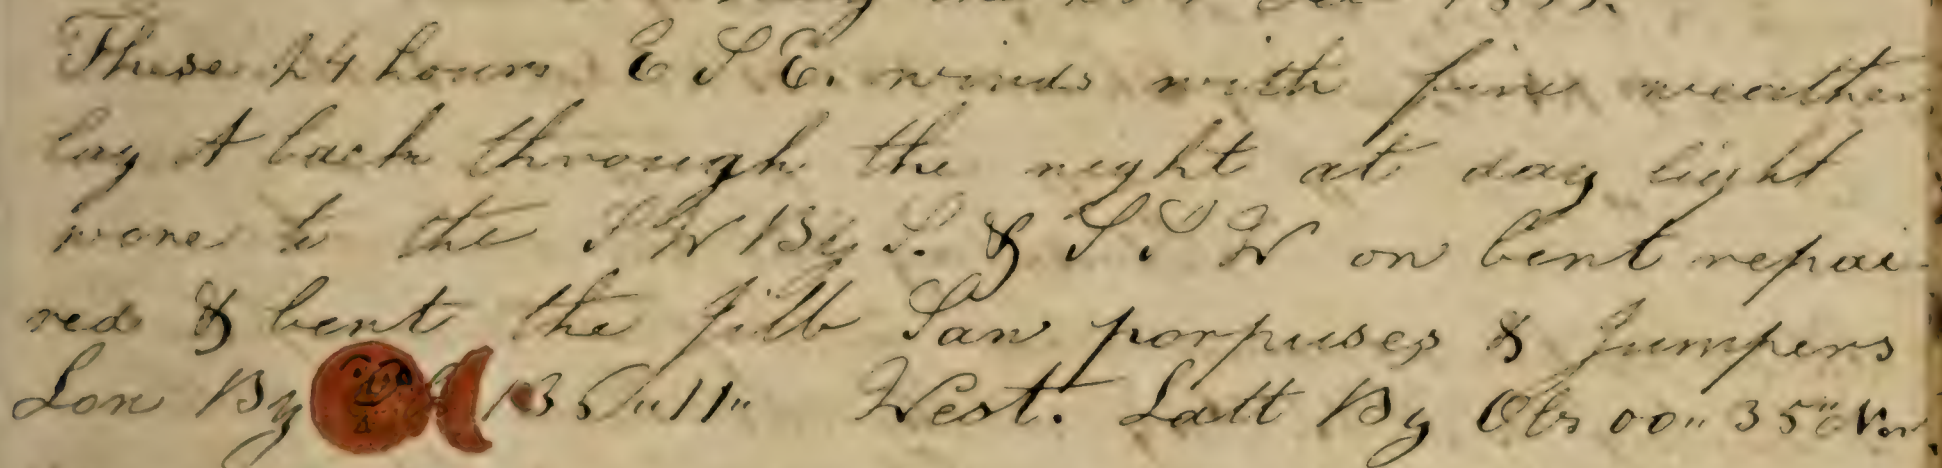 These 24 hours E S E. winds with fine weather
lay A back through the night at day light
wore to the S W By S. & S S W on bent repai
red & bent the Jibb Saw porpuses & Jumpers
Lon By 135"11" West. Latt By Obs 00" 35" Nor